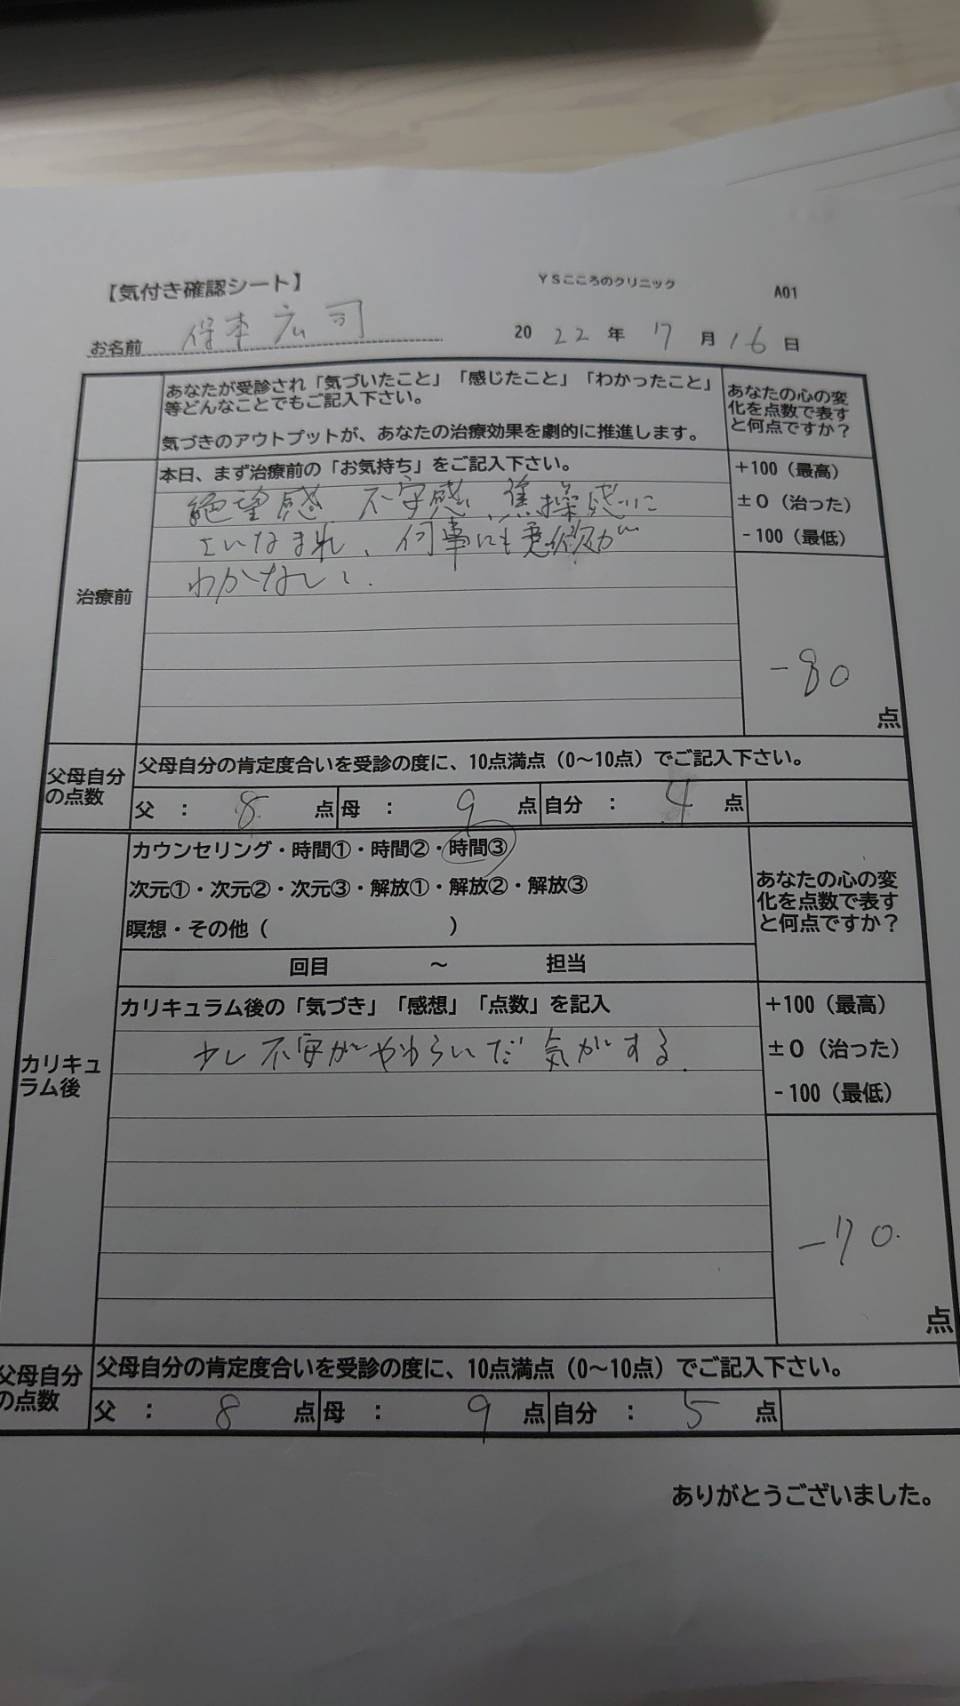 【気付き確認シート】 YSこころのクリニック A01
お名前 保本 広司 2022年 7月 16日
あなたが受診され「気づいたこと」「感じたこと」「わかったこと」
等どんなことでもご記入下さい。
気づきのアウトプットが、あなたの治療効果を劇的に推進します。
あなたの心の変
化を点数で表す
と何点ですか？
治療前
本日、まず治療前の「お気持ち」をご記入下さい。
絶望感、不安感、焦燥感に
さいなまれ、何事にも意欲が
わかない。
+100（最高）
±0（治った）
-100（最低）
-80
点
父母自分
の点数
父母自分の肯定度合いを受診の度に、10点満点（0～10点）でご記入下さい。
父 ： 8 点 母 ： 9 点 自分 ： 4 点
カリキュ
ラム後
カウンセリング・時間①・時間②・時間③
次元①・次元②・次元③・解放①・解放②・解放③
瞑想・その他（ ）
回目 ～ 担当
あなたの心の変
化を点数で表す
と何点ですか？
カリキュラム後の「気づき」「感想」「点数」を記入
少し不安がやわらいだ気がする.
+100（最高）
±0（治った）
-100（最低）
-70.
点
父母自分
の点数
父母自分の肯定度合いを受診の度に、10点満点（0～10点）でご記入下さい。
父 ： 8 点 母 ： 9 点 自分 ： 5 点
ありがとうございました。